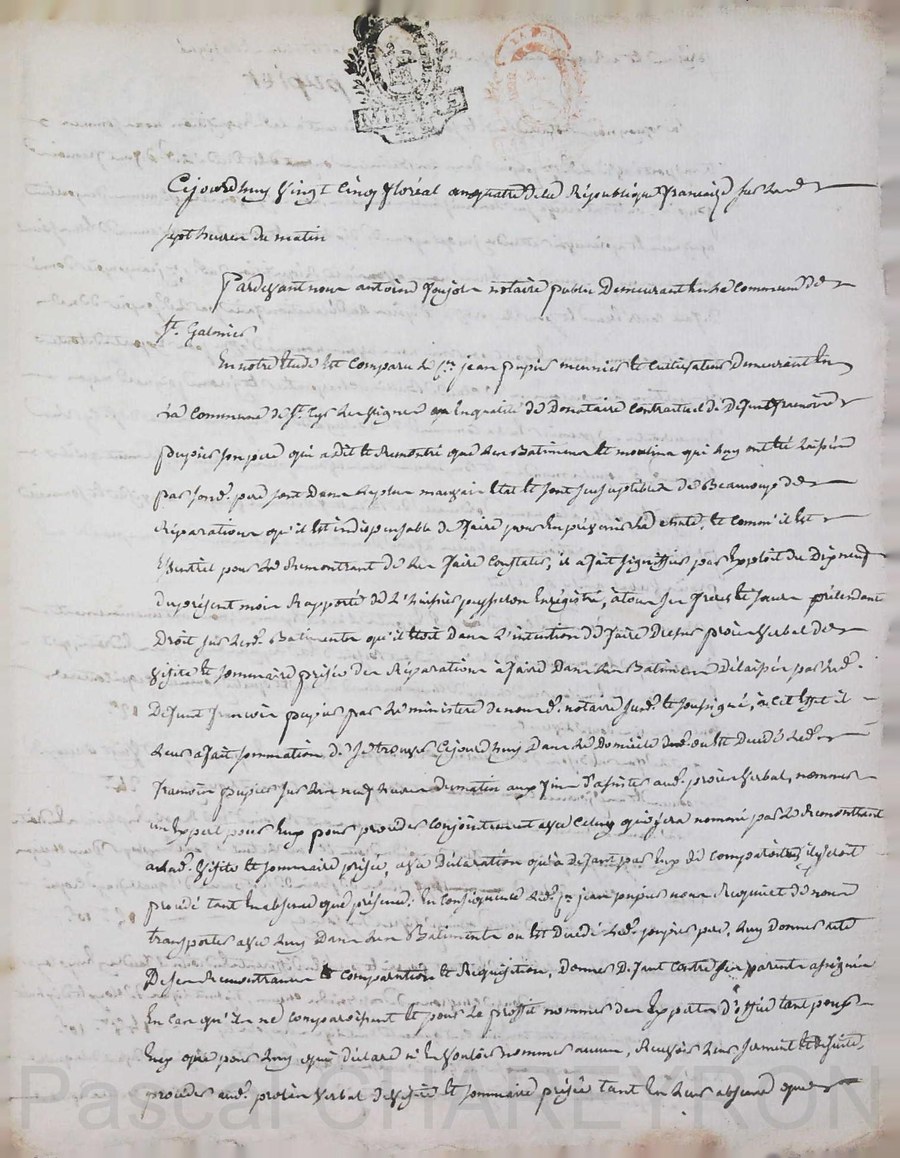 Cejourdhuy vingt cinq floréal an quatre de la République francaise sur les
sept heures du matin
Pardevant nous antoine notaire public demeurant en la commune de
St. Galmier
En notre étude est comparu le Cn. jean pupier meunier et cultivateur demeurant en
la commune de St. Cyr les vignes en qualité de Donataire contractuel de défunt francois
pupier son pere qui a dit et Remontré que les Batimens et moulins qui luy ont été laissés
par sond. pere sont dans le plus mauvais Etat et sont susceptibles de Beaucoup de
Réparations qu'il est indispensable de faire pour en prévenir la chute, et comm'il est
Essentiel pour le Remontrant de les faire Constater, il a fait signiffier par Exploit du dix neuf
du présent mois Rapporté de l'huissier Enregistré, à tous ses freres et soeurs prétendant
Droit sur lesd. Batiments qu'il étoit dans l'intention de faire dresser procès verbal de
visite et sommaire prisée des Réparations à faire dans les Batimens délaissés par led.
Défunt francois pupier par le ministere de nousd. notaire sus. et soussigné, à cet effet il
leur a fait sommation de se trouver Cejourdhuy dans le domicile ou est décédé led.
francois pupier sur les neuf heures du matin aux fins d'assister aud. procès verbal, nommer
un Expert pour Eux pour procéder conjointement avec celuy qui sera nommé par le Remontrant
a lad. visite et sommaire prisée, avec déclaration qu'a defaut par Eux de comparoitre il seroit
procédé tant en absence que présence; En conséquence led. Cn. jean pupier nous Requiert de nous
transporter avec luy dans les Batiments ou est décédé led. pupier pere, luy donner acte
De ses Remontrances et comparution et Réquisition, donner défaut contre ses parents assignés
En cas qu'ils ne comparoissent et pour le proffit nommer des Experts d'office tant pour
Eux que pour luy qui déclare n'en vouloir nommer aucun, Recevoir leur serment et de suite
procéder aud. procès verbal de visite et sommaire prisée tant en leur absence que
Pascal CHAREYRON